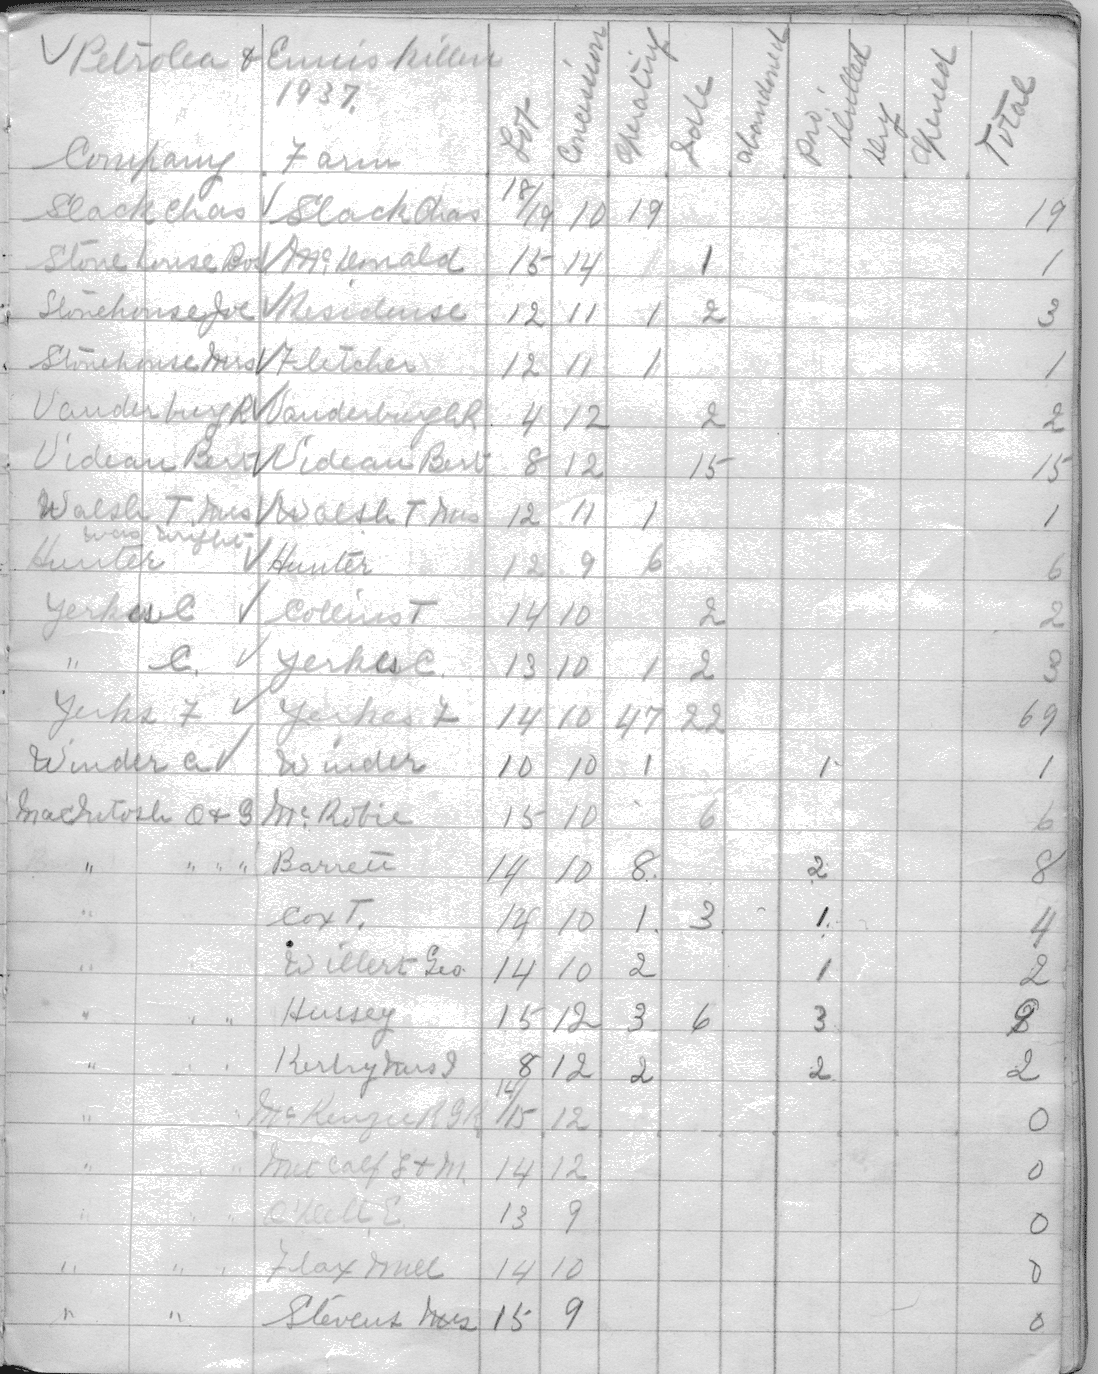 ✓ Petrolea & Enniskillen
1937.
Company Farm Lot Concession operating Idle abandoned pro' drilled dry opened Total
Slack Chas ✓ Slack Chas 18/19 10 19 19
Stonehouse Bos ✓ McDonald 15 14 1 1
Stonehouse Joe ✓ Residense 12 11 1 2 3
Stonehouse Mrs ✓ Fletcher 12 11 1 1
Vanderburg R ✓ Vanderburgh R 4 12 2 2
Videan Bert ✓ Videan Bert 8 12 15 15
Walsh T. Mrs ✓ Walsh T Mrs 12 11 1 1
was Wright
Hunter ✓ Hunter 12 9 6 6
Yerkes C ✓ Collins T 14 10 2 2
" C. ✓ Yerkes C. 13 10 1 2 3
Yerks F ✓ Yerkes F 14 10 47 22 69
Winder A ✓ Winder 10 10 1 1 1
MacIntosh O & G McRobie 15 10 6 6
" " " " Barrett 14 10 8. 2 8
" Cox T. 14 10 1. 3 1. 4
" Willert Geo. 14 10 2 1 2
" " " Hussey 15 12 3 6 3 9
" " " Kerby Mrs I 8 12 2 2 2
" " McKenzie R G R 14/15 12 0
" " " Metcalf L & M. 14 12 0
" " " O'Neill E. 13 9 0
" " " Flax Mill 14 10 0
" " Stevens Mrs 15 9 0